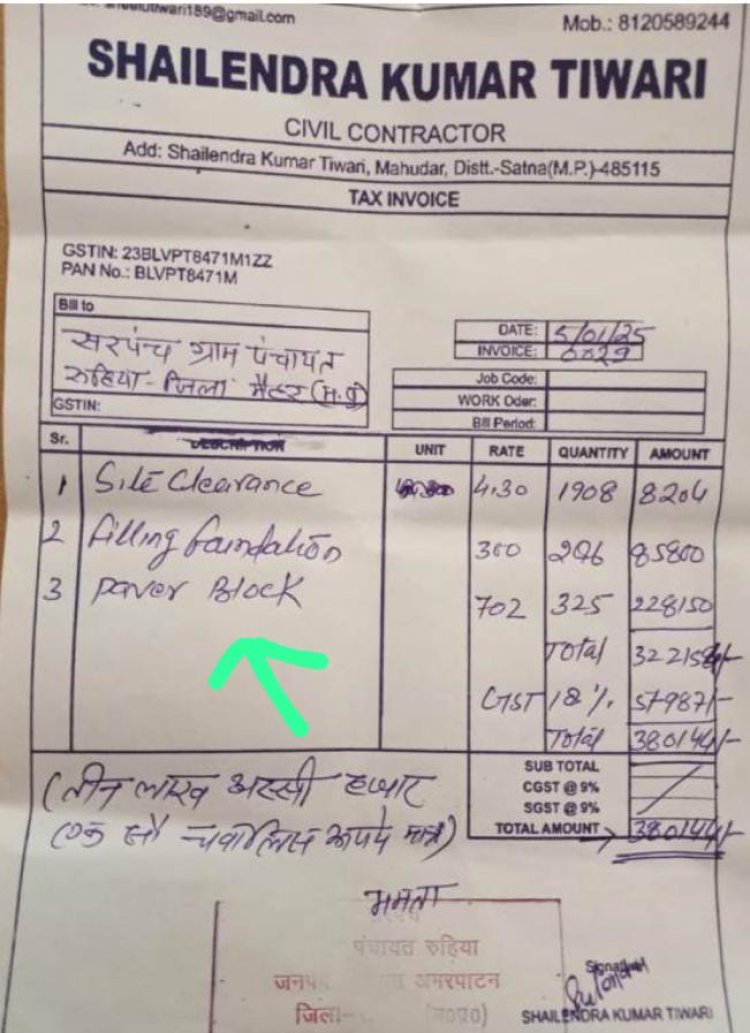 tiwari189@gmail.com
Mob.: 8120589244
SHAILENDRA KUMAR TIWARI
CIVIL CONTRACTOR
Add: Shailendra Kumar Tiwari, Mahudar, Distt.-Satna(M.P.)-485115
TAX INVOICE
GSTIN: 23BLVPT8471M1ZZ
PAN No.: BLVPT8471M
Bill to
सरपंच ग्राम पंचायत
रुहिया - जिला मैहर (म.प्र)
GSTIN:
DATE: 5/01/25
INVOICE: 0029
Job Code:
WORK Oder:
Bill Period:
Sr. DESCRIPTION UNIT RATE QUANTITY AMOUNT
1 Site Clearance 4.30 1908 8204
2 filling foundation 300 286 85800
3 paver Block 702 325 228150
Total 322154/-
GST 18%. 57987/-
Total 380144/-
SUB TOTAL
CGST @ 9%
SGST @ 9%
TOTAL AMOUNT 380144/-
(तीन लाख अस्सी हजार
एक सौ चवालिस रूपये मात्र)
ममता
पंचायत रुहिया
अमरपाटन
जिला-
SHAILENDRA KUMAR TIWARI